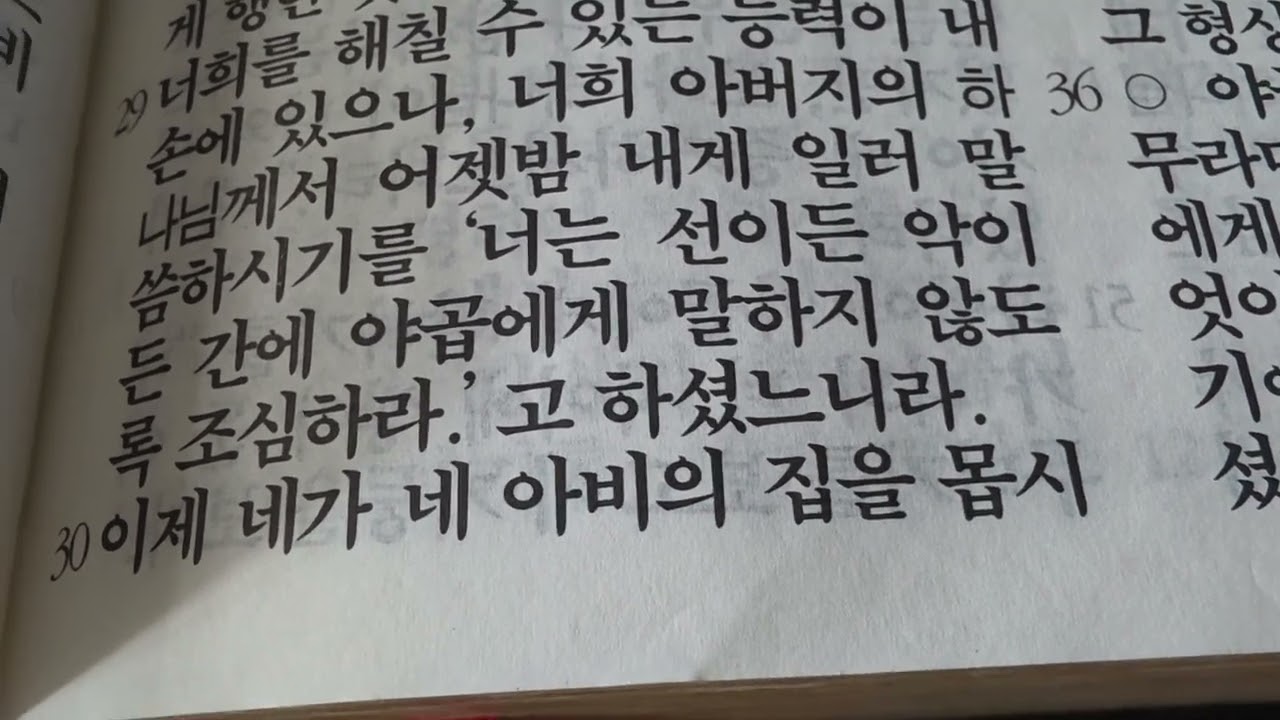 게 행한
너희를 해칠 수 있는 능력이 내
29 손에 있으나, 너희 아버지의 하
나님께서 어젯밤 내게 일러 말
씀하시기를 ‘너는 선이든 악이
든 간에 야곱에게 말하지 않도
록 조심하라.’ 고 하셨느니라.
30 이제 네가 네 아비의 집을 몹시
그 형상
36 ○ 야
무라
에게
엇
기
셨
비
51